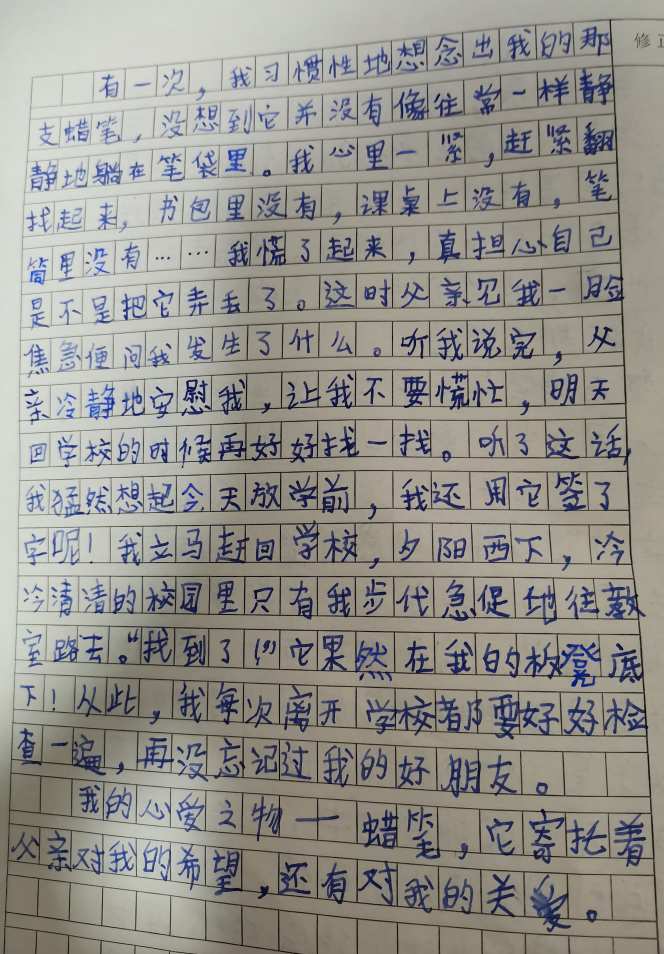 修正
有一次，我习惯性地想念出我的那
支蜡笔，没想到它并没有像往常一样静
静地躺在笔袋里。我心里一紧，赶紧翻
找起来，书包里没有，课桌上没有，笔
筒里没有……我慌了起来，真担心自己
是不是把它弄丢了。这时父亲见我一脸
焦急便问我发生了什么。听我说完，父
亲冷静地安慰我，让我不要慌忙，明天
回学校的时候再好好找一找。听了这话，
我猛然想起今天放学前，我还用它签了
字呢！我立马赶回学校，夕阳西下，冷
冷清清的校园里只有我步代急促地往教
室路去。“找到了！”它果然在我的板凳底
下！从此，我每次离开学校都要好好检
查一遍，再没忘记过我的好朋友。
我的心爱之物一蜡笔，它寄托着
父亲对我的希望，还有对我的关爱。